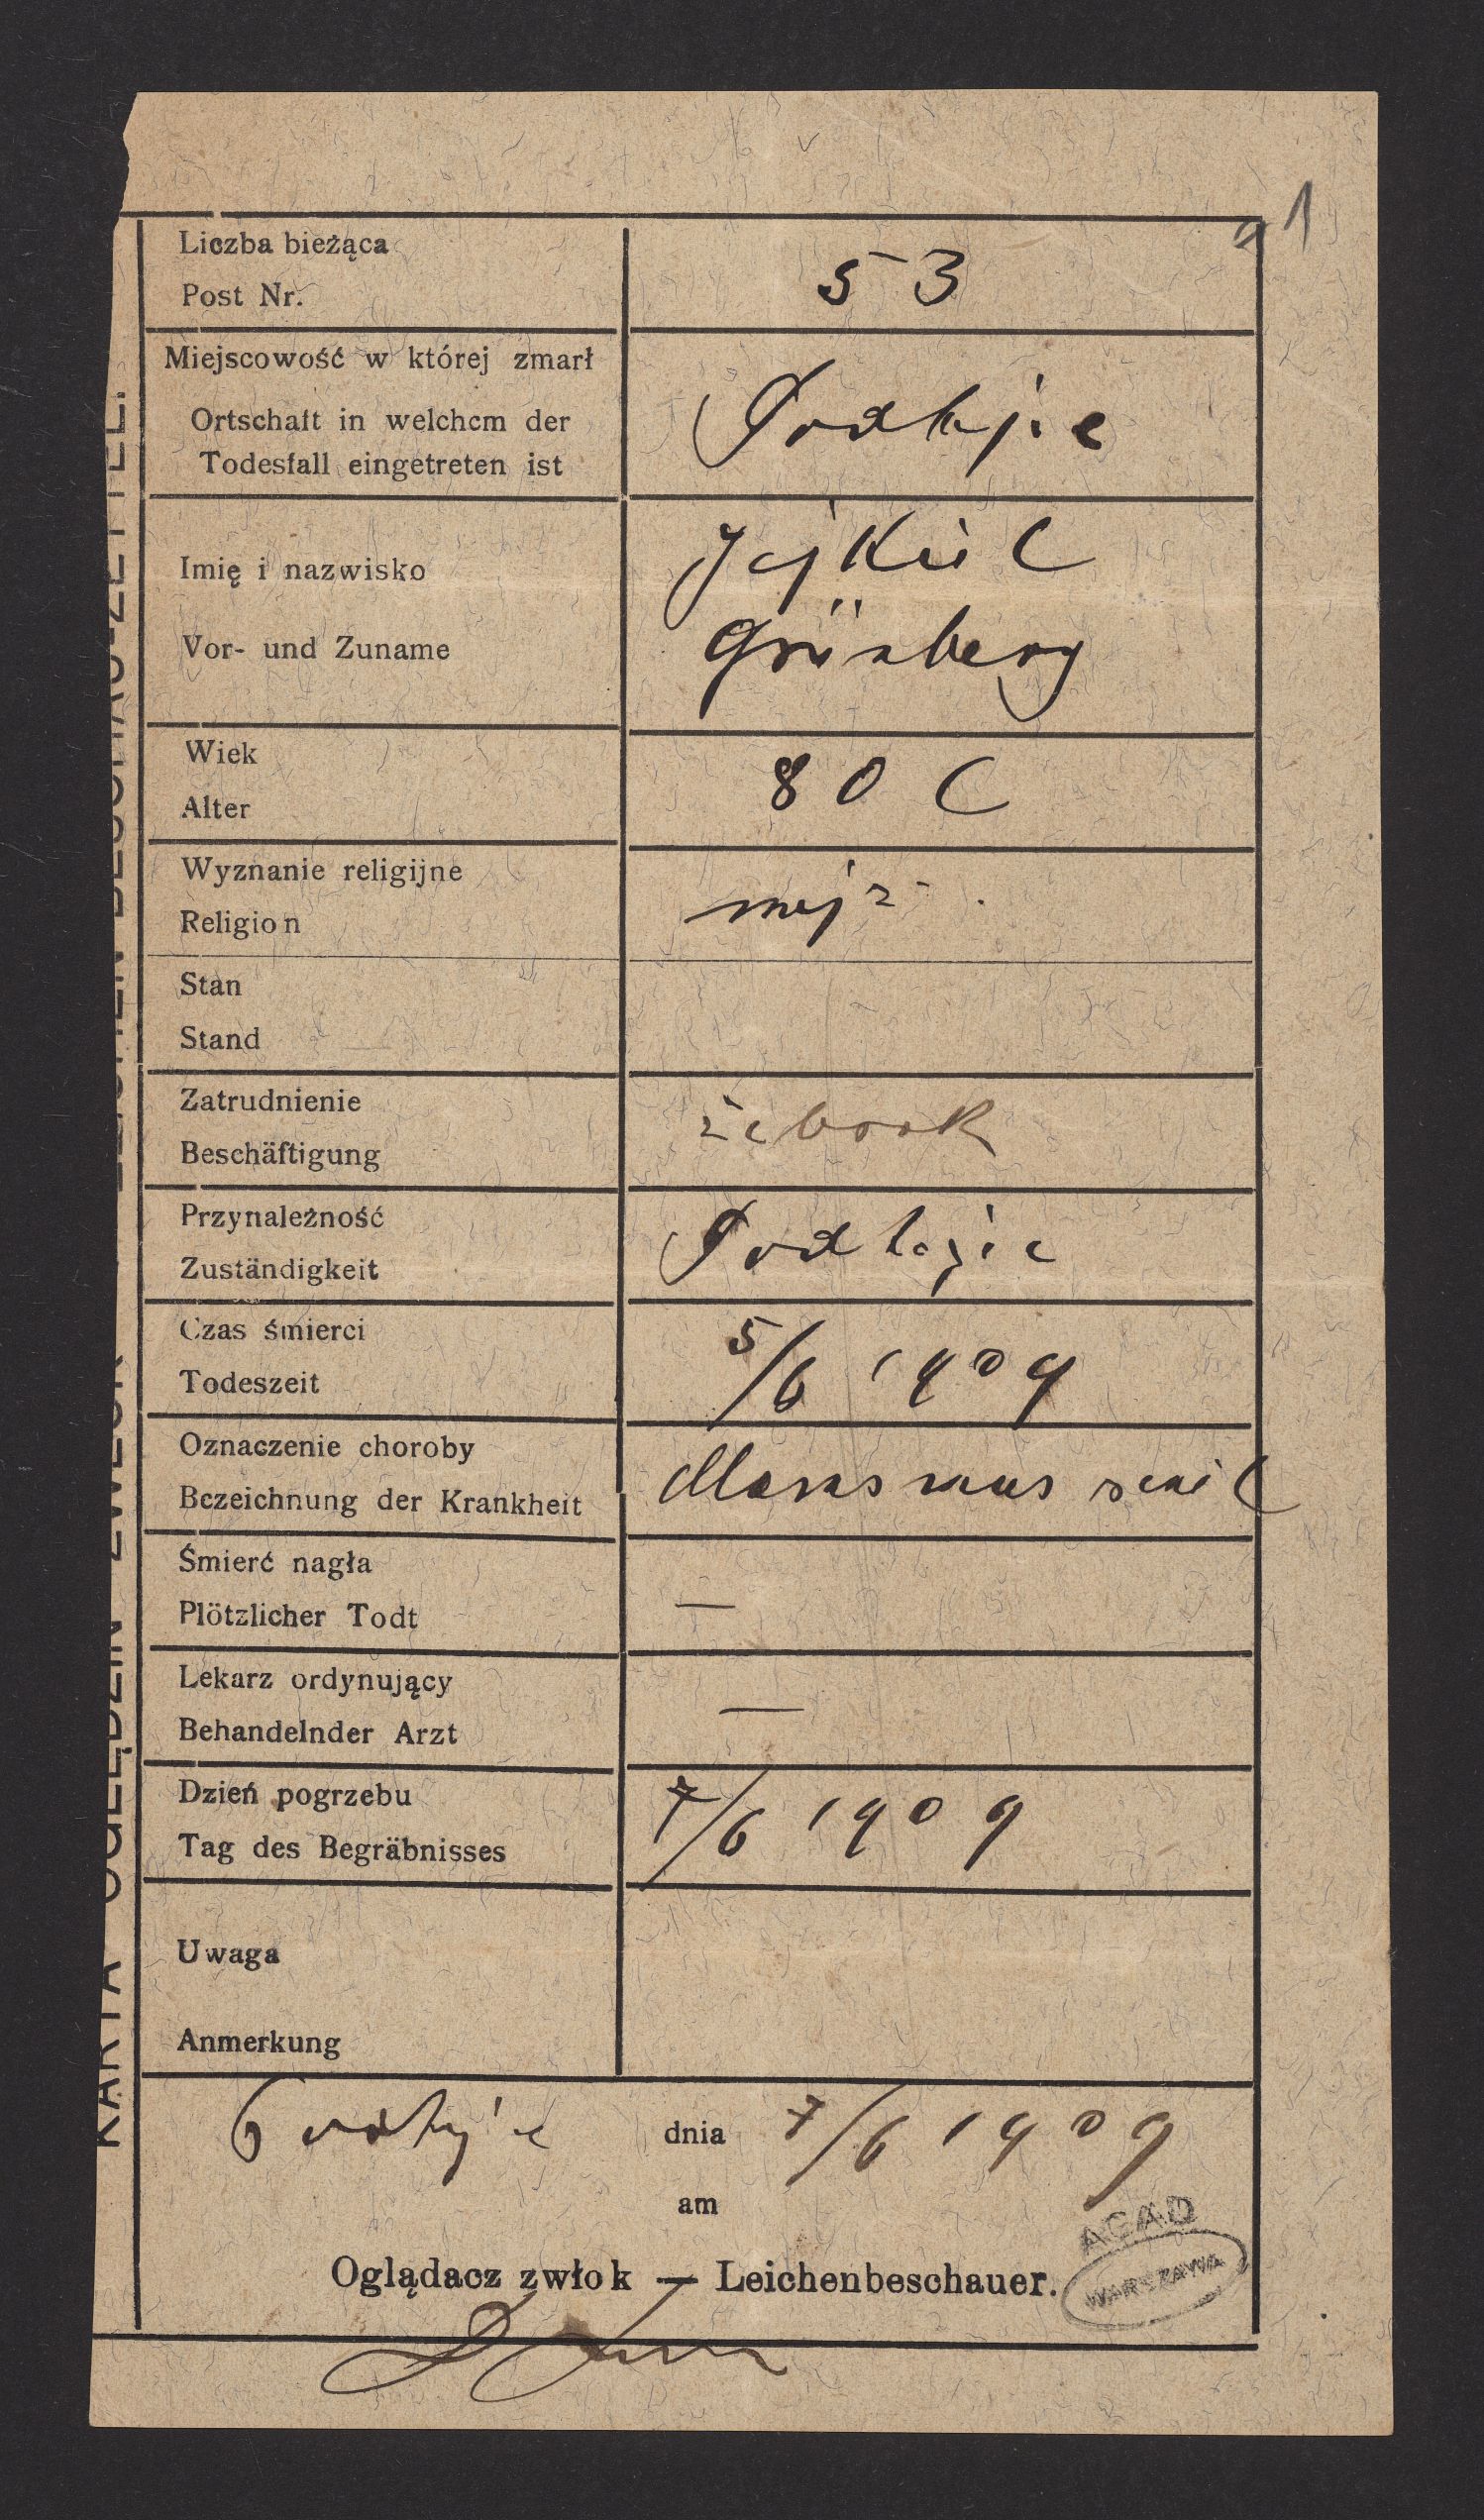 1
Liczba bieżąca
Post Nr.
53
Miejscowość w której zmarł
Ortschaft in welchem der
Todesfall eingetreten ist
Podhajce
Imię i nazwisko
Vor- und Zuname
Grünberg
Wiek
Alter
80 l
Wyznanie religijne
Religion
mojż.
Stan
Stand
Zatrudnienie
Beschäftigung
żebrak
Przynależność
Zuständigkeit
Podhajce
Czas śmierci
Todeszeit
5/6 1909
Oznaczenie choroby
Bezeichnung der Krankheit
Marasmus senil
Śmierć nagła
Plötzlicher Todt
—
Lekarz ordynujący
Behandelnder Arzt
—
Dzień pogrzebu
Tag des Begräbnisses
7/6 1909
Uwaga
Anmerkung
Podhajce dnia 7/6 1909
am
Oglądacz zwłok — Leichenbeschauer.
AGAD
WARSZAWA
KARTA OGLĘDZIN ZWŁOK